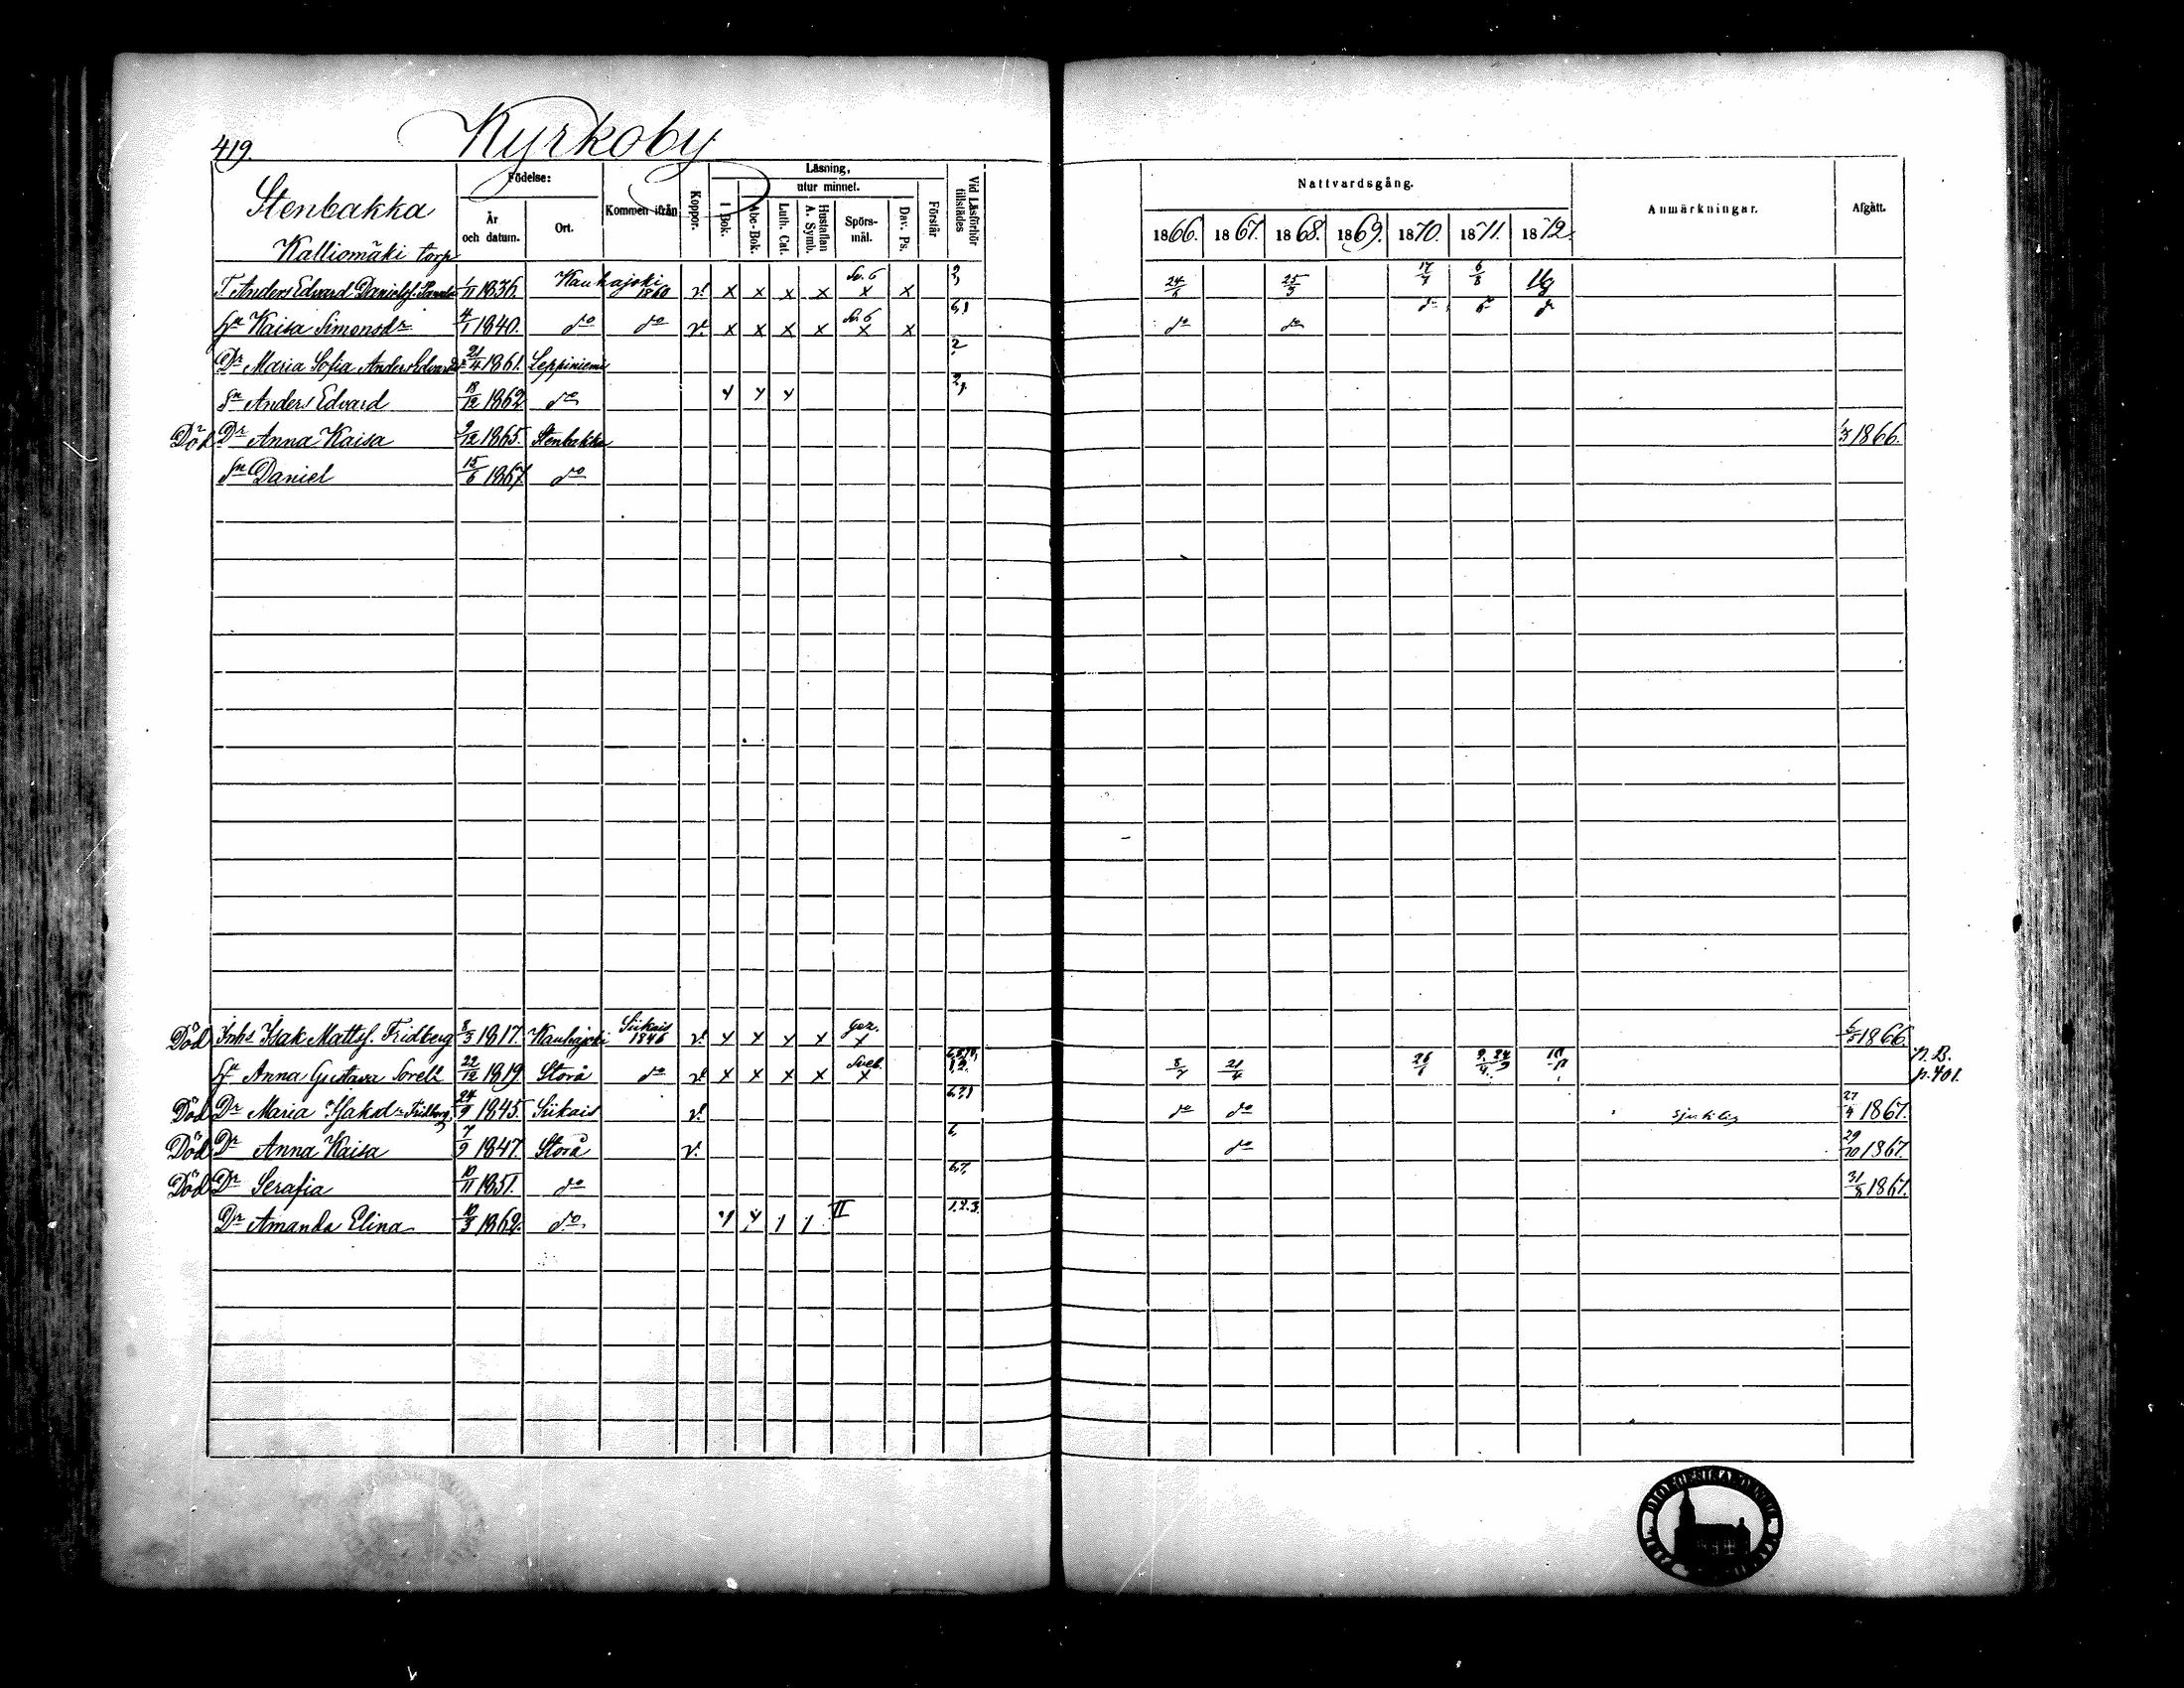 419. Kyrkoby
Stenbakka
Kalliomäki torp
Födelse:
År och datum.
Ort.
Kommen ifrån
Koppor.
Läsning,
utur minnet.
I Bok.
Abc-Bok.
Luth. Cat.
Hustaflan A. Symb.
Spörs-mål.
Dav. Ps.
Förstår
Vid Läsförhör tillstädes
Nattvardsgång.
1866. 1867. 1868. 1869. 1870. 1871. 1872.
Anmärkningar.
Afgått.
T. Anders Edvard Danielsf. 1/11 1836. Kauhajoki 1860 v. x x x x Sv. 6 x x 2, 24/6 25/3 17/7 6/8
Hu Kaisa Simonsdr 4/1 1840. do do v. x x x x Sv. 6 x x 6,1 do do
Dr Maria Sofia Anders Edvardsdr 21/4 1861. Leppiniemi 2
Sn Anders Edvard 18/12 1862 do 2,
Död Dr Anna Kaisa 9/12 1865. Stenbakka 1/3 1866.
Sn Daniel 15/6 1867 do
Död Inhs Isak Mattsf. Fridberg 8/3 1817. Kauhajoki Siikais 1846 v. x x x x x 1866.
Hu Anna Gustava Sorell 22/12 1819. Storå do v. x x x x Sveb. x 8/7 21/4 N.B. p. 401.
Död Dr Maria Isaksdr Fridberg 24/9 1845. Siikais v. 6,7,1 do do sjuklig 27/4 1867.
Död Dr Anna Kaisa 7/9 1847. Storå v. 6, do 29/10 1867.
Död Dr Serafia 10/11 1851. do 6,7, 31/8 1867.
Dr Amanda Elina 10/3 1862. do II 1.2.3.